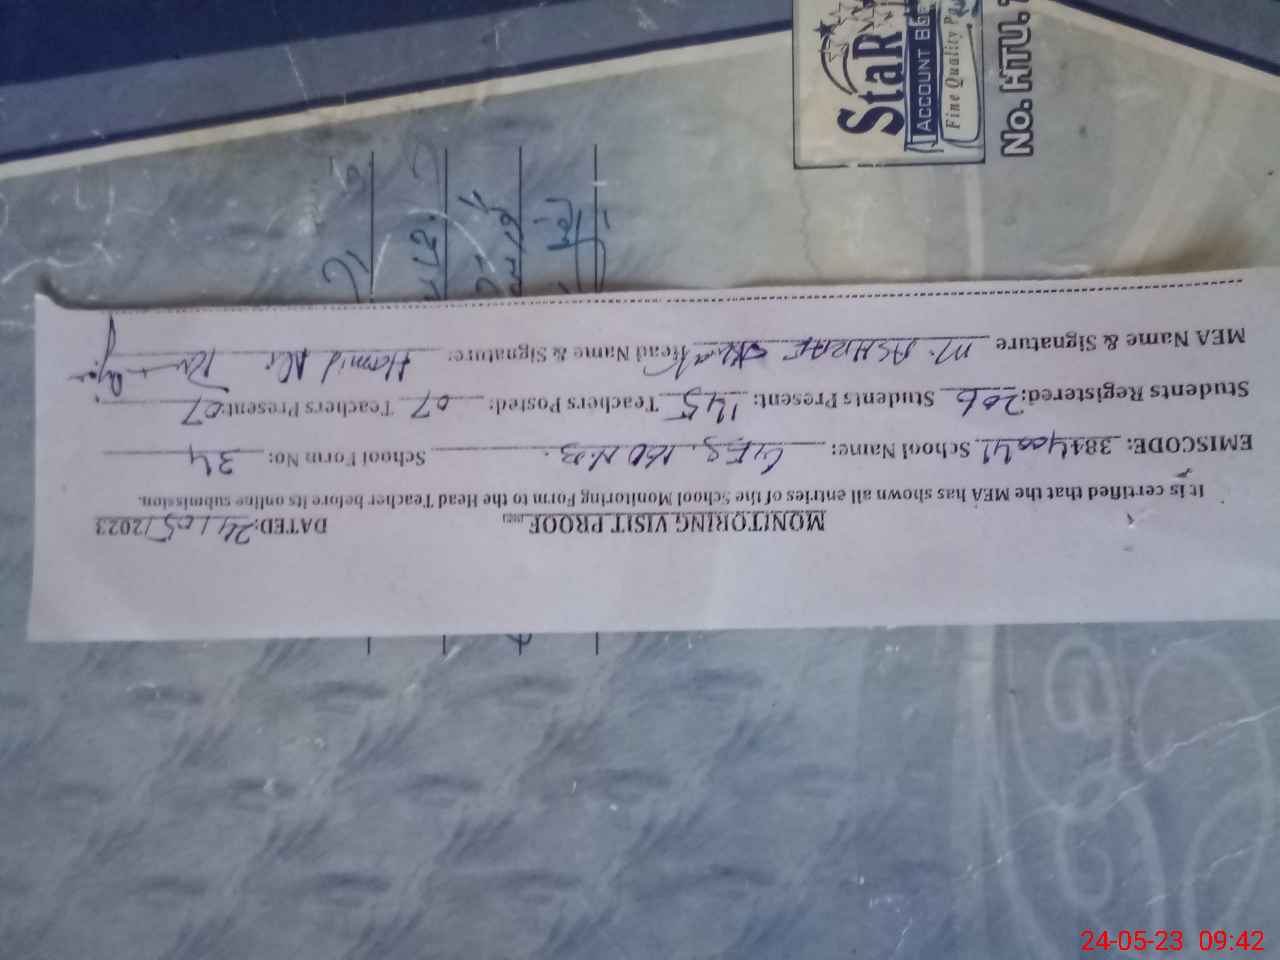 MONITORING VISIT PROOF DATED: 24/05/2023
It is certified that the MEA has shown all entries of the School Monitoring Form to the Head Teacher before its online submission.
EMISCODE: 38440041 School Name: GES 160 N.B. School Form No: 34
Students Registered: 206 Students Present: 145 Teachers Posted: 07 Teachers Present: 07
MEA Name & Signature M. ASHRAF Head Name & Signature: Hamid Ali
StaR
ACCOUNT
Fine Quality
No. HTU.
24-05-23 09:42